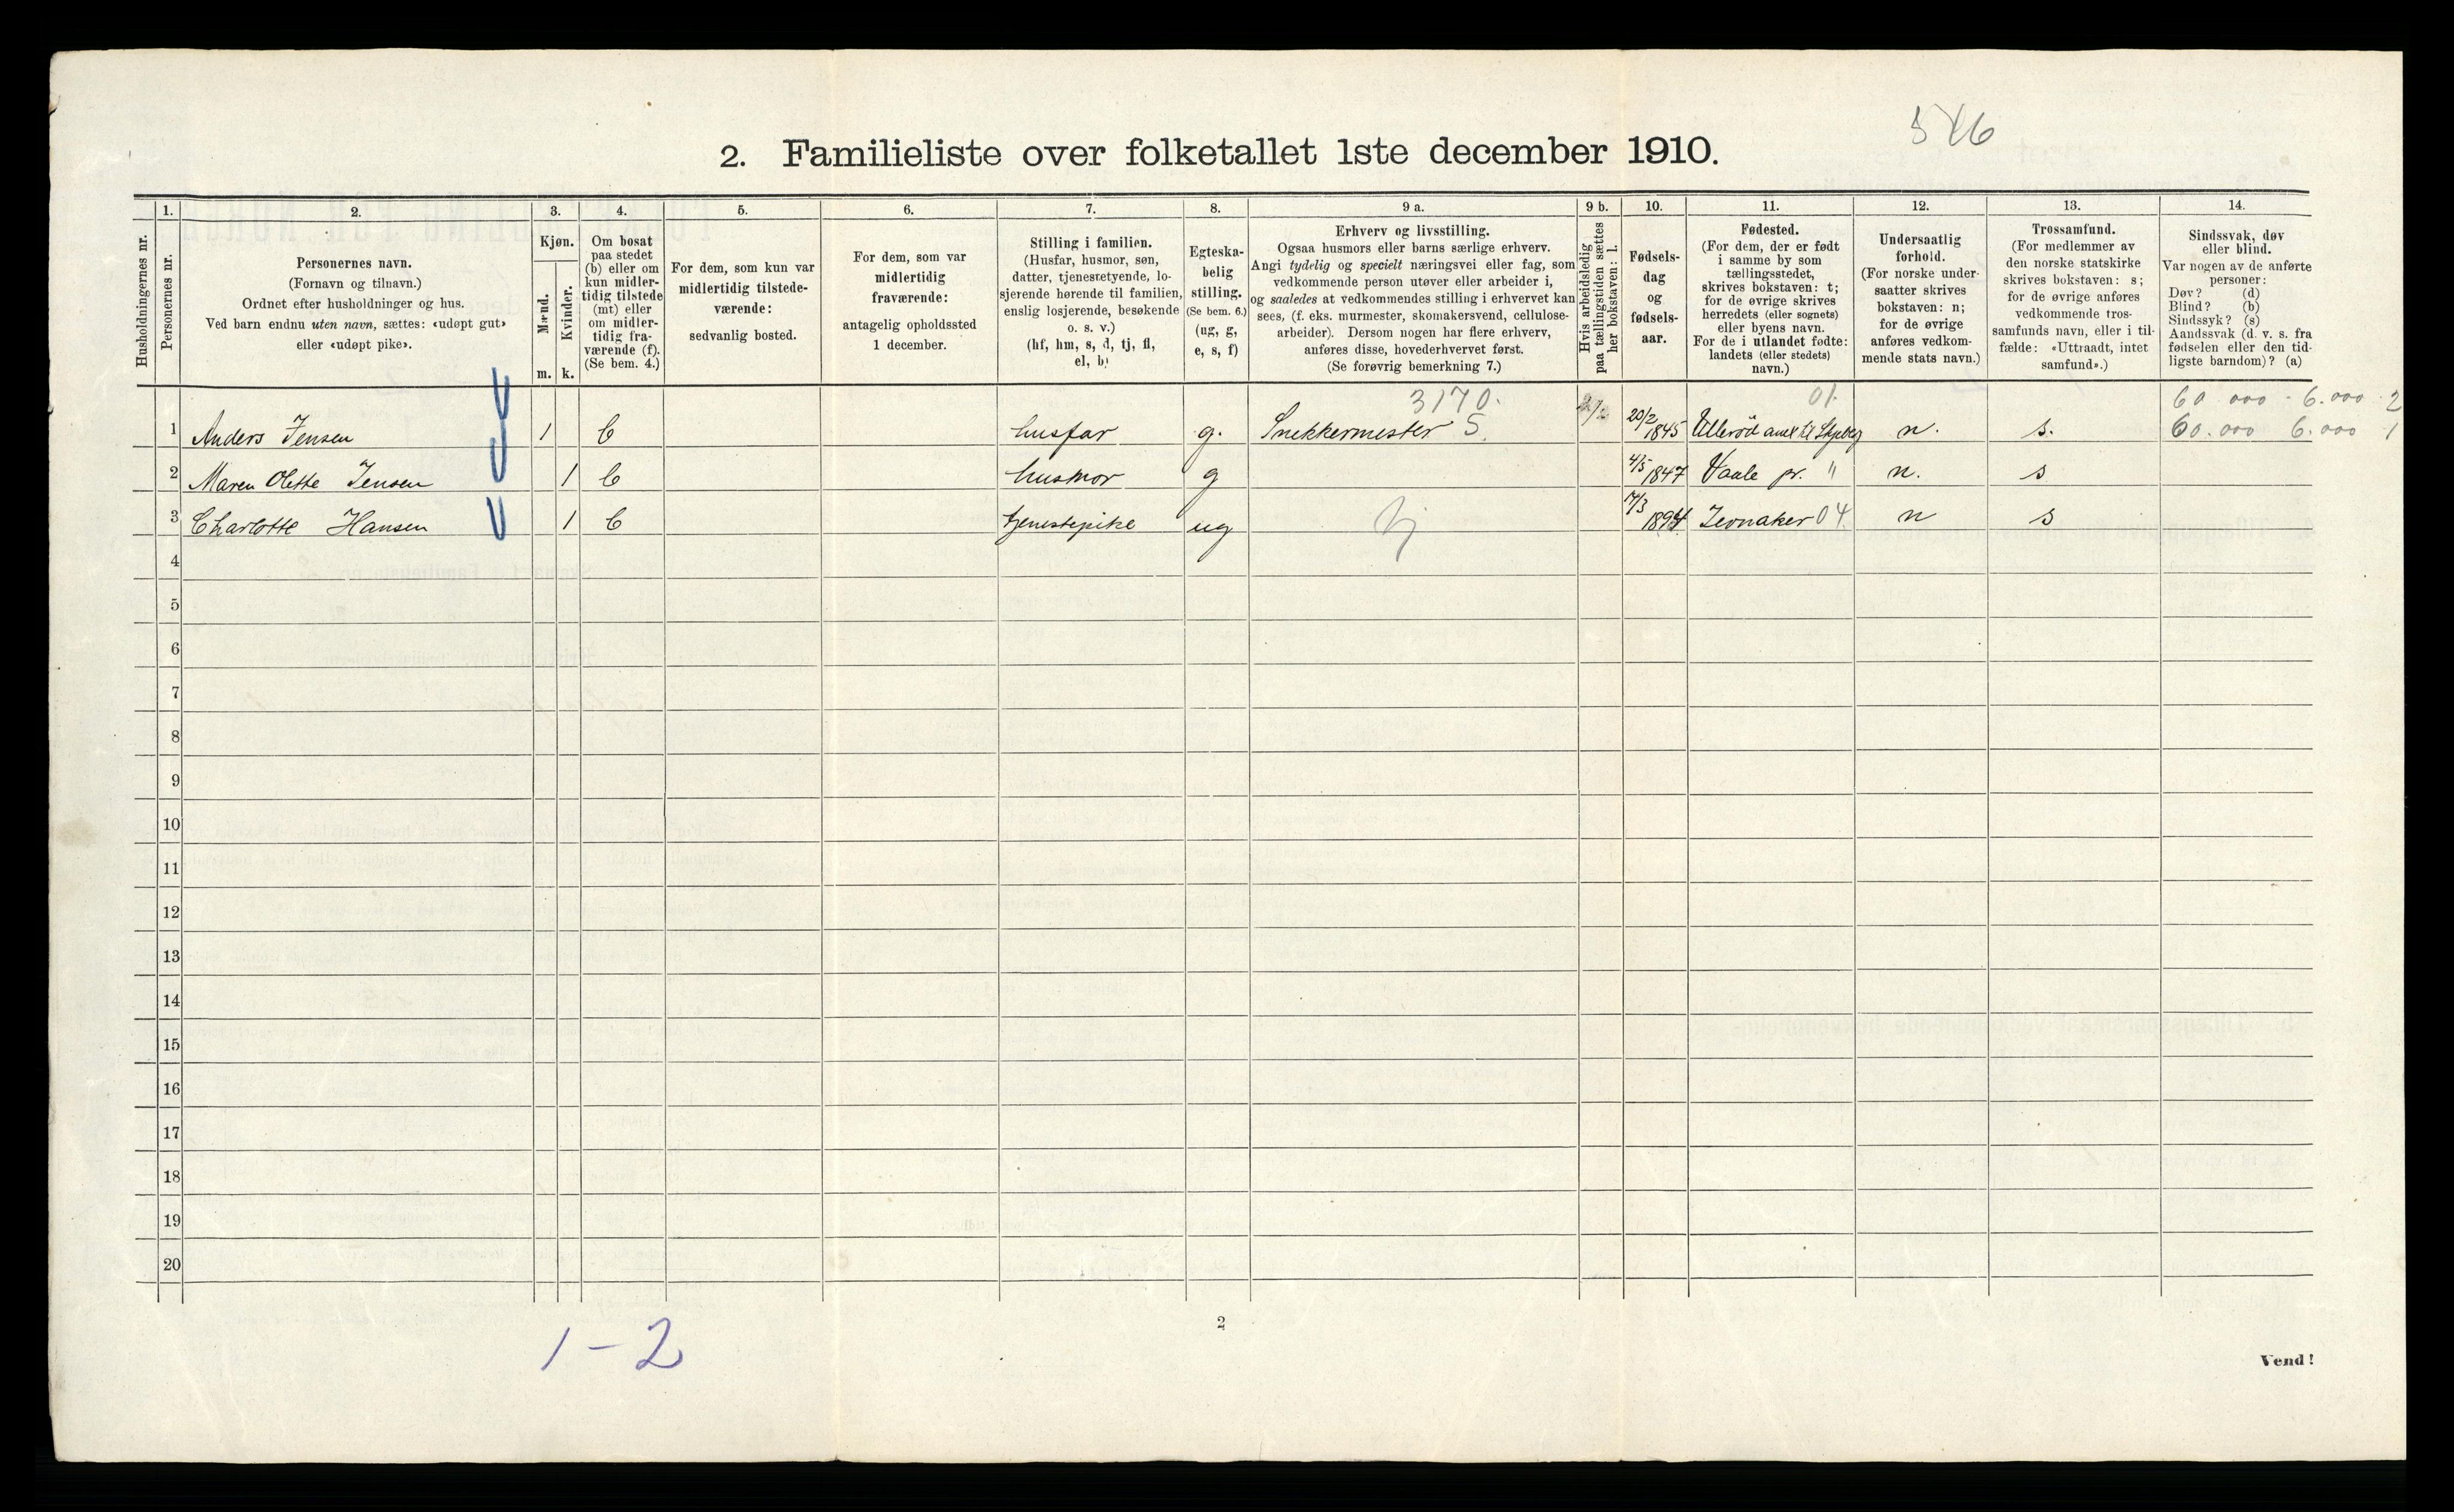 546
2. Familieliste over folketallet 1ste december 1910.
Husholdningernes nr.
1. Personernes nr.
2. Personernes navn. (Fornavn og tilnavn.) Ordnet efter husholdninger og hus. Ved barn endnu uten navn, sættes: «udøpt gut» eller «udøpt pike».
3. Kjøn. Mænd. m. Kvinder. k.
4. Om bosat paa stedet (b) eller om kun midlertidig tilstede (mt) eller om midlertidig fraværende (f). (Se bem. 4.)
5. For dem, som kun var midlertidig tilstedeværende: sedvanlig bosted.
6. For dem, som var midlertidig fraværende: antagelig opholdssted 1 december.
7. Stilling i familien. (Husfar, husmor, søn, datter, tjenestetyende, losjerende hørende til familien, enslig losjerende, besøkende o. s. v.) (hf, hm, s, d, tj, fl, el, b)
8. Egteskabelig stilling. (Se bem. 6.) (ug, g, e, s, f)
9 a. Erhverv og livsstilling. Ogsaa husmors eller barns særlige erhverv. Angi tydelig og specielt næringsvei eller fag, som vedkommende person utøver eller arbeider i, og saaledes at vedkommendes stilling i erhvervet kan sees, (f. eks. murmester, skomakersvend, cellulosearbeider). Dersom nogen har flere erhverv, anføres disse, hovederhvervet først. (Se forøvrig bemerkning 7.)
9 b. Hvis arbeidsledig paa tællingstiden sættes her bokstaven: l.
10. Fødselsdag og fødselsaar.
11. Fødested. (For dem, der er født i samme by som tællingsstedet, skrives bokstaven: t; for de øvrige skrives herredets (eller sognets) eller byens navn. For de i utlandet fødte: landets (eller stedets) navn.)
12. Undersaatlig forhold. (For norske undersaatter skrives bokstaven: n; for de øvrige anføres vedkommende stats navn.)
13. Trossamfund. (For medlemmer av den norske statskirke skrives bokstaven: s; for de øvrige anføres vedkommende trossamfunds navn, eller i tilfælde: «Uttraadt, intet samfund».)
14. Sindssvak, døv eller blind. Var nogen av de anførte personer: Døv? (d) Blind? (b) Sindssyk? (s) Aandssvak (d. v. s. fra fødselen eller den tidligste barndom)? (a)
3170. 01. 60 000 - 6.000 - 2
1 Anders Jensen 1 b husfar g. Snekkermester S. 20/2 1845 Ulleröd anex til Skjeberg n. s. 60.000 6.000 1
2 Maren Olette Jensen 1 b husmor g 4/5 1847 Vaale pr. " n. s
3 Charlotte Hansen 1 b tjenestepike ug tj 7/3 1894 Jevnaker 04 n s
4
5
6
7
8
9
10
11
12
13
14
15
16
17
18
19
20
1-2
2
Vend!